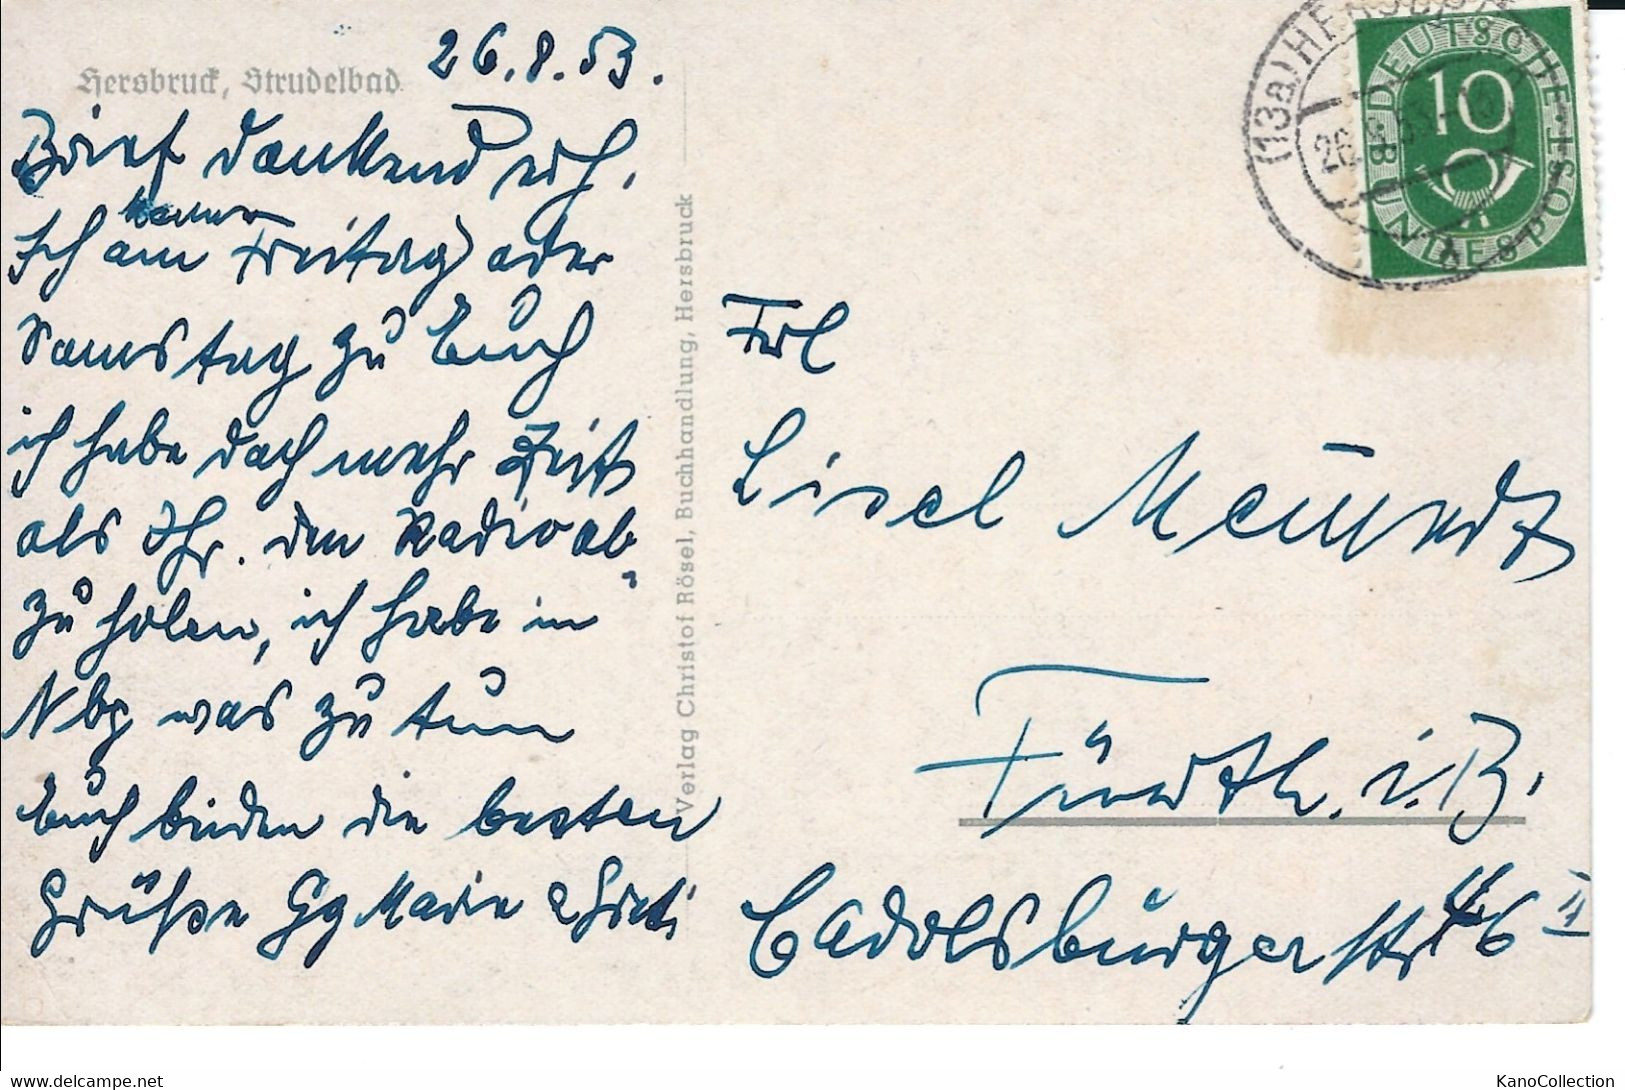 Hersbruck, Strudelbad
26.8.53.
Brief dankend erh.
Ich komme am Freitag oder
Samstag zu Euch
ich habe doch mehr Zeit
als Ihr. den Radio ab
zu holen, ich habe in
Nbg was zu tun
Euch beiden die besten
Grüße Gg Marie &
Verlag Christof Rösel, Buchhandlung, Hersbruck
(13a) HERSBRUCK
26.8.53
DEUTSCHE BUNDESPOST
10
Frl
Lisel
Fürth. i. B.
Cadolzburgerstr 6 II
www.delcampe.net
KanoCollection